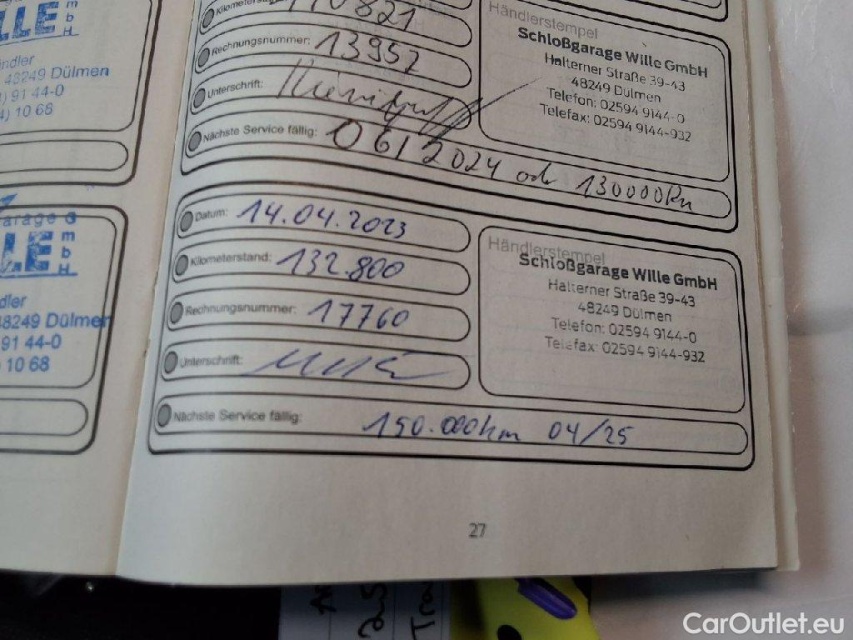 LLE mbH
ändler
48249 Dülmen
91 44-0
10 68
Garage G
LLE mbH
dler
48249 Dülmen
91 44-0
10 68
Kilometerstand:
Rechnungsnummer: 13957
Unterschrift:
Nächste Service fällig: 06/2024 od 130000km
Händlerstempel
Schloßgarage Wille GmbH
Halterner Straße 39-43
48249 Dülmen
Telefon: 02594 9144-0
Telefax: 02594 9144-932
Datum: 14.04.2023
Kilometerstand: 132.800
Rechnungsnummer: 17760
Unterschrift:
Nächste Service fällig: 150.000km 04/25
Händlerstempel
Schloßgarage Wille GmbH
Halterner Straße 39-43
48249 Dülmen
Telefon: 02594 9144-0
Telefax: 02594 9144-932
27
CarOutlet.eu